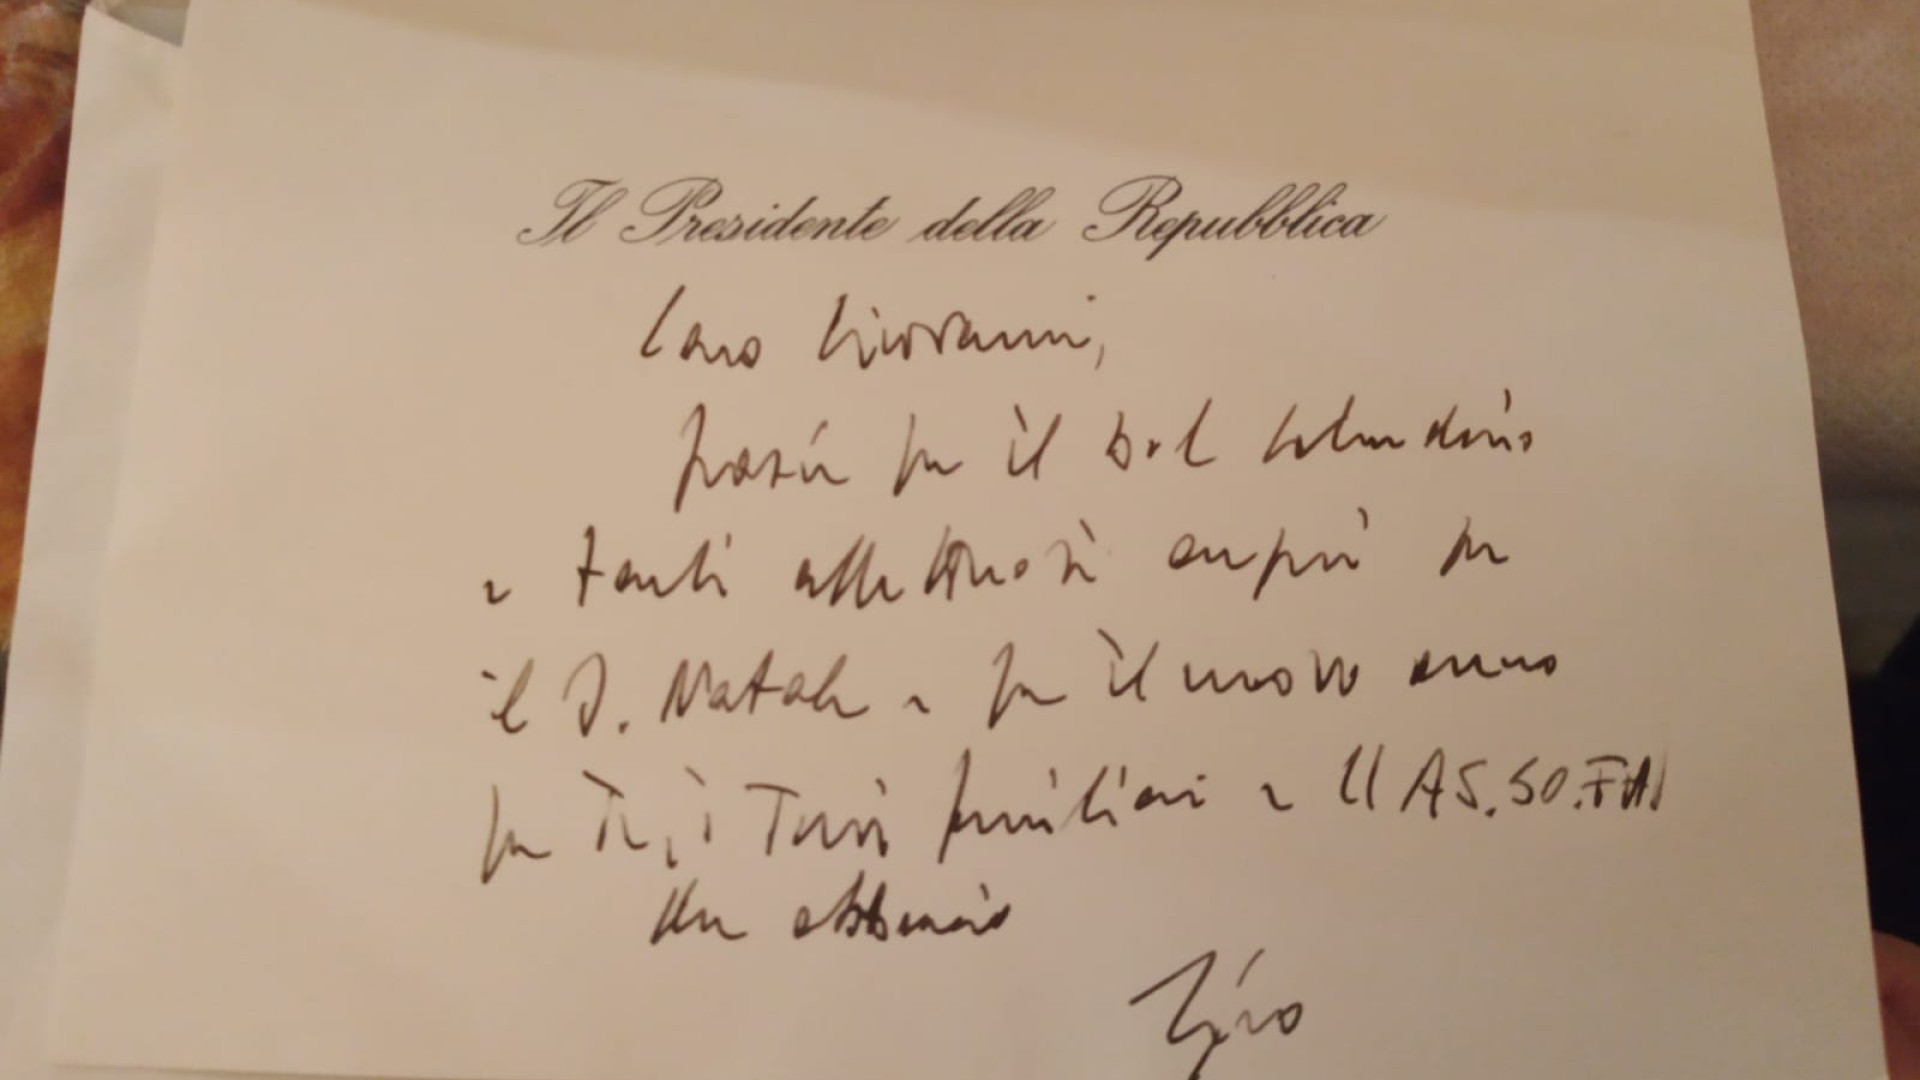 Il Presidente della Repubblica
Caro Giovanni,
grazie per il bel calendario
e tanti affettuosi auguri per
il S. Natale e per il nuovo anno
per Te, i Tuoi familiari e AS.SO.FA.
Un abbraccio